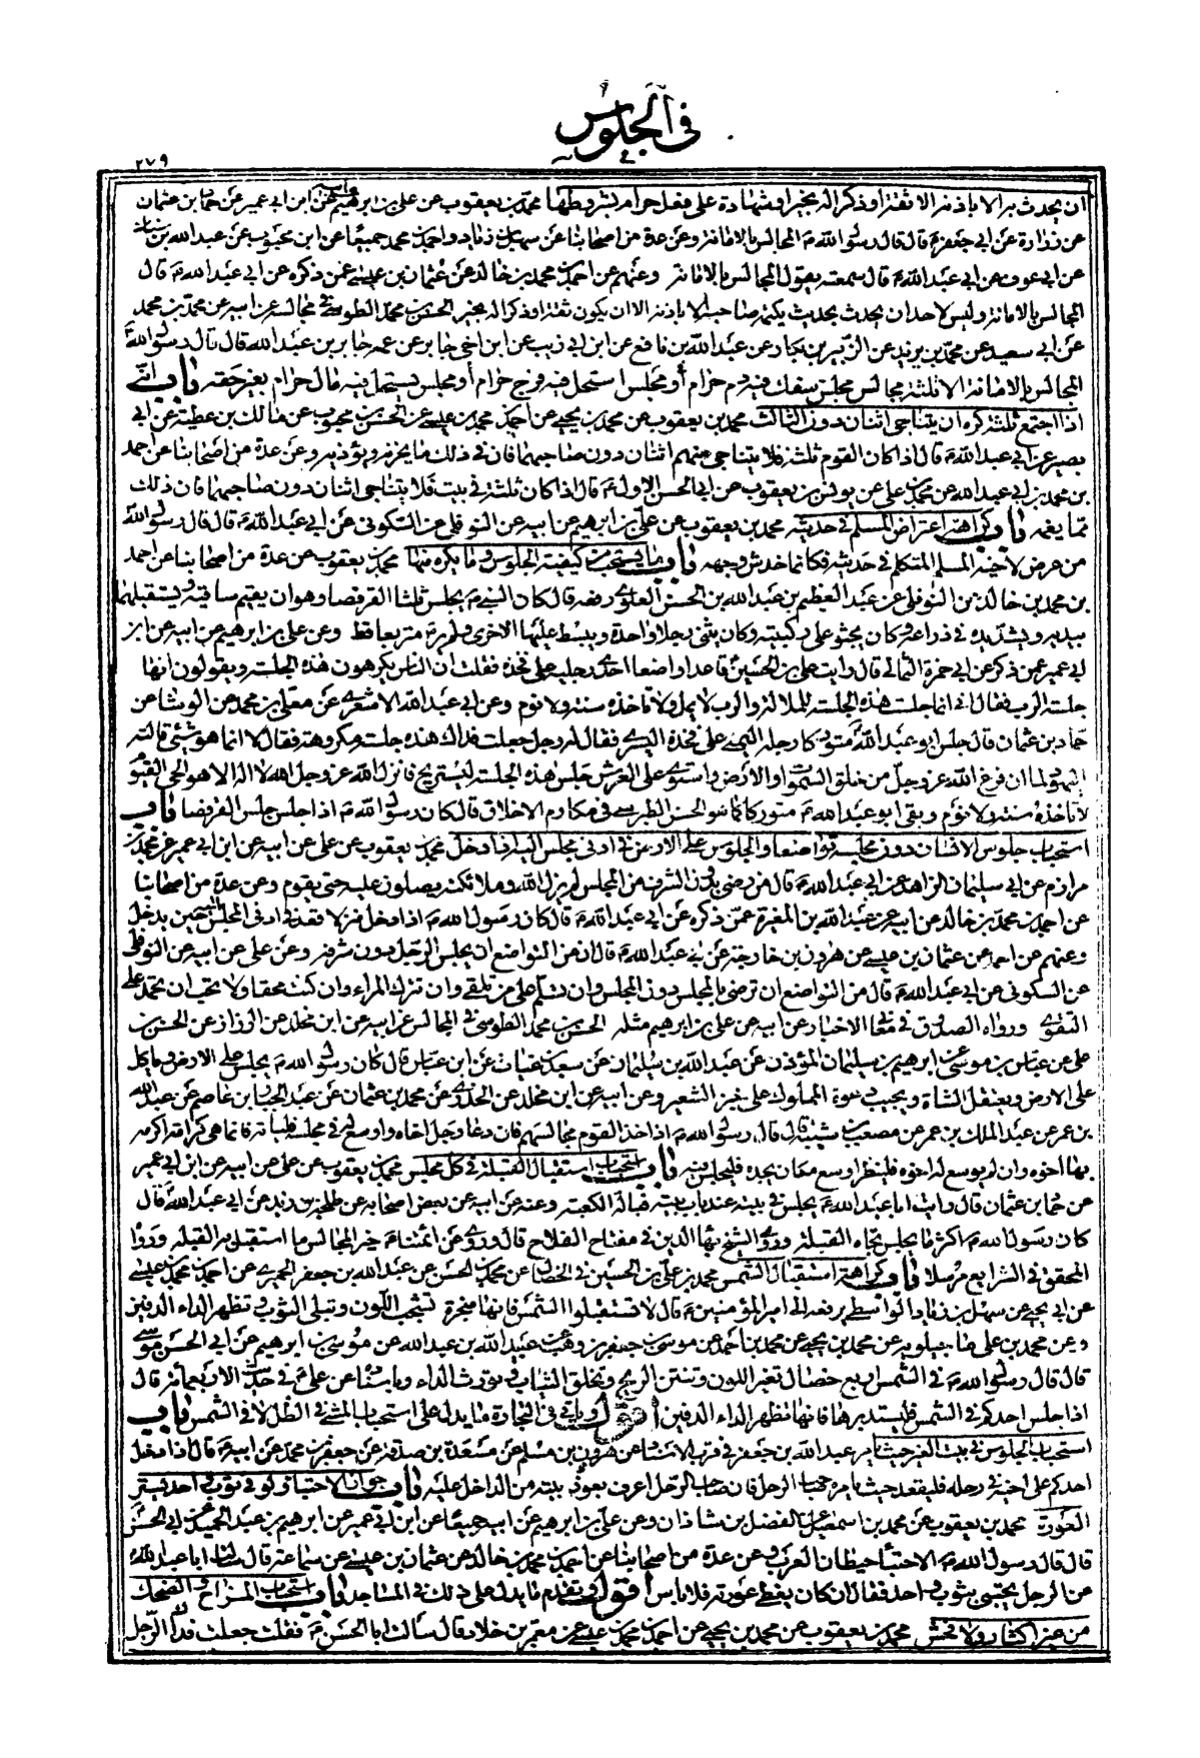 في الجلوس
٢٧٩
ان يحدث به الا باذنه الا ثقة او ذكر اله بخير او شهادة على فعل حرام بشروطها محمد بن يعقوب عن علي بن ابرهيم عن ابيه عن ابن ابي عمير عن حماد بن عثمان
عن زرارة عن ابي جعفر ع قال قال رسول الله ص المجالس بالامانة وعن عدة من اصحابنا عن سهل بن زياد واحمد بن محمد جميعا عن ابن محبوب عن عبد الله بن سنان
عن ابي عوف عن ابي عبد الله ع قال سمعته يقول المجالس بالامانة وعنهم عن احمد بن محمد بن خالد عن عثمان بن عيسى عمن ذكره عن ابي عبد الله ع قال
المجالس بالامانة وليس لاحد ان يحدث بحديث يكتمه صاحبه الا باذنه الا ان يكون ثقة او ذكرا له بخير الحسن بن محمد الطوسي في مجالسه عن ابيه عن محمد بن محمد
عن ابي سعيد عن محمد بن يزيد عن الزبير بن بكار عن عبد الله بن نافع عن ابن ابي ذيب عن ابن اخي جابر عن عمه جابر بن عبد الله قال قال رسول الله ص
المجالس بالامانة الا ثلثة مجالس مجلس سفك فيه دم حرام أو مجلس استحل فيه فرج حرام أو مجلس يستحل فيه مال حرام بغير حقه باب انه
اذا اجتمع ثلثة كره ان يتناجى اثنان دون الثالث محمد بن يعقوب عن محمد بن يحيى عن احمد بن محمد بن عيسى عن الحسن بن محبوب عن مالك بن عطية عن ابي
بصير عن ابي عبد الله ع قال اذا كان القوم ثلثة فلا يتناجى منهم اثنان دون صاحبهما فان في ذلك ما يحزنه ويؤذيه وعن عدة من اصحابنا عن احمد
بن محمد بن ابي عبد الله عن محمد بن علي عن يونس بن يعقوب عن ابي الحسن الاول ع قال اذا كان ثلثة في بيت فلا يتناجى اثنان دون صاحبهما فان ذلك
مما يغمه باب كراهة اعتراض المسلم في حديثه محمد بن يعقوب عن علي بن ابرهيم عن ابيه عن النوفلي عن السكوني عن ابي عبد الله ع قال قال رسول الله ص
من عرض لاخيه المسلم المتكلم في حديثه فكانما خدش وجهه باب ما يستحب من كيفية الجلوس وما يكره منها محمد بن يعقوب عن عدة من اصحابنا عن احمد
بن محمد بن خالد عن النوفلي عن عبد العظيم بن عبد الله بن الحسن العلوي رفعه قال كان النبي ص يجلس ثلثا القرفصا وهو ان يقيم ساقيه ويستقبلهما
بيديه ويشد يده في ذراعه وكان يجثو على ركبتيه وكان يثني رجلا واحدة ويبسط عليها الاخرى ولم ير ص متربعا قط وعن علي بن ابرهيم عن ابيه عن ابن
ابي عمير عمن ذكر عن ابي حمزة الثمالي قال رايت علي بن الحسين ع قاعدا واضعا احدى رجليه على فخذه فقلت ان الناس يكرهون هذه الجلسة ويقولون انها
جلسة الرب فقال اني انما جلست هذه الجلسة للملالة والرب لا يمل ولا تاخذه سنة ولا نوم وعن ابي عبد الله الاشعري عن معلى بن محمد عن الوشا عن
حماد بن عثمان قال جلس ابو عبد الله ع متوركا رجله اليمنى على فخذه اليسرى فقال له رجل جعلت فداك هذه جلسة مكروهة فقال لا انما هو شئ قالته
اليهود لما ان فرغ الله عز وجل من خلق السموات والارض واستوى على العرش جلس هذه الجلسة ليستريح فانزل الله عز وجل الله لا اله الا هو الحي القيوم
لا تاخذه سنة ولا نوم وبقي ابو عبد الله ع متوركا كما هو الحسن الطبرسي في مكارم الاخلاق قال كان رسول الله ص اذا جلس جلس القرفصا باب
استحباب جلوس الانسان دون مجلسه تواضعا والجلوس على الارض في ادنى مجلس اليه اذا دخل محمد بن يعقوب عن علي عن ابيه عن ابن ابي عمير عن محمد بن
مرازم عن ابي سليمان الزاهد عن ابي عبد الله ع قال من رضي بدون الشرف من المجلس لم يزل الله وملائكته يصلون عليه حتى يقوم وعن عدة من اصحابنا
عن احمد بن محمد بن خالد عن ابيه عن عبد الله بن المغيرة عمن ذكره عن ابي عبد الله ع قال كان رسول الله ص اذا دخل منزلا قعد في ادنى المجلس اليه حين يدخل
وعنهم عن احمد عن عثمان بن عيسى عن هرون بن خارجة عن ابي عبد الله ع قال ان من التواضع ان يجلس الرجل دون شرفه وعن علي عن ابيه عن النوفلي
عن السكوني عن ابي عبد الله ع قال من التواضع ان ترضى بالمجلس دون المجلس وان تسلم على من تلقى وان تترك المراء وان كنت محقا ولا تحب ان تحمد على
التقوى ورواه الصدوق في معاني الاخبار عن ابيه عن علي بن ابرهيم مثله الحسن بن محمد الطوسي في المجالس عن ابيه عن ابن مخلد عن الرزاز عن الحسن بن
علي عن عباس بن موسى عن ابرهيم بن سليمان المؤدب عن عبد الله بن سليمان عن سعيد عن ابن عباس قال كان رسول الله ص يجلس على الارض وياكل
على الارض ويعتقل الشاة ويجيب دعوة المملوك على خبز الشعير وعن ابيه عن ابن مخلد عن الخلدي عن محمد بن عثمان عن عبد الجبار بن عاصم عن عبد الله
بن عمر عن عبد الملك بن عمير عن مصعب بن شيبة قال قال رسول الله ص اذا اخذ القوم مجالسهم فان دعا رجل اخاه واوسع له في مجلسه فلياته فانما هي كرامة اكرمه
بها اخوه وان لم يوسع له اخوه فلينظر اوسع مكان يجده فليجلس فيه باب استحباب استقبال القبلة في كل مجلس محمد بن يعقوب عن علي عن ابيه عن ابن ابي عمير
عن حماد بن عثمان قال رايت ابا عبد الله ع يجلس في بيته عند باب بيته قبالة الكعبة وعنه عن ابيه عن بعض اصحابه عن طلحة بن زيد عن ابي عبد الله ع قال
كان رسول الله ص اكثر ما يجلس تجاه القبلة وروى الشيخ بهاء الدين في مفتاح الفلاح قال وروى عن ائمتنا ع خير المجالس ما استقبل به القبلة ورواه
المحقق في الشرايع مرسلا باب كراهة استقبال الشمس محمد بن علي بن الحسين في الخصال عن محمد بن الحسن عن عبد الله بن جعفر الحميري عن احمد بن محمد بن عيسى
عن ابي يحيى عن سهل بن زياد الواسطي يرفعه الى امير المؤمنين ع قال لا تستقبلوا الشمس فانها مبخرة تشحب اللون وتبلي الثوب وتظهر الداء الدفين
وعن محمد بن علي ماجيلويه عن محمد بن يحيى عن محمد بن احمد عن موسى بن جعفر بن وهب عن عبيد الله بن عبد الله عن موسى بن ابرهيم عن ابي الحسن موسى
قال قال رسول الله ص في الشمس اربع خصال تغير اللون وتنتن الريح وتخلق الثياب وتورث الداء وباسناده عن علي ع في حديث الاربعمائة قال
اذا جلس احدكم في الشمس فليستدبرها فانها تظهر الداء الدفين أقول وياتي في التجارة ما يدل على استحباب المشي في الظل لا في الشمس باب
استحباب الجلوس في بيت الغير حيث يامر عبد الله بن جعفر في قرب الاسناد عن هرون بن مسلم عن مسعدة بن صدقة عن جعفر بن محمد عن ابيه ع قال اذا دخل
احدكم على اخيه في رحله فليقعد حيث يامره صاحب الرحل فان صاحب الرحل اعرف بعورة بيته من الداخل عليه باب جواز الاحتباء ولو في ثوب واحد يستر
العورة محمد بن يعقوب عن محمد بن اسمعيل عن الفضل بن شاذان وعن علي بن ابرهيم عن ابيه جميعا عن ابن ابي عمير عن ابرهيم بن عبد الحميد عن ابي الحسن
قال قال رسول الله ص الاحتباء حيطان العرب وعن عدة من اصحابنا عن احمد بن محمد بن خالد عن عثمان بن عيسى عن سماعة قال سالت ابا عبد الله
عن الرجل يحتبي بثوب واحد فقال ان كان يغطي عورته فلا باس أقول وتقدم ما يدل على ذلك في المساجد باب استحباب المزاح والضحك
من غير اكثار ولا فحش محمد بن يعقوب عن محمد بن يحيى عن احمد بن محمد بن عيسى عن معمر بن خلاد قال سالت ابا الحسن ع فقلت جعلت فداك الرجل